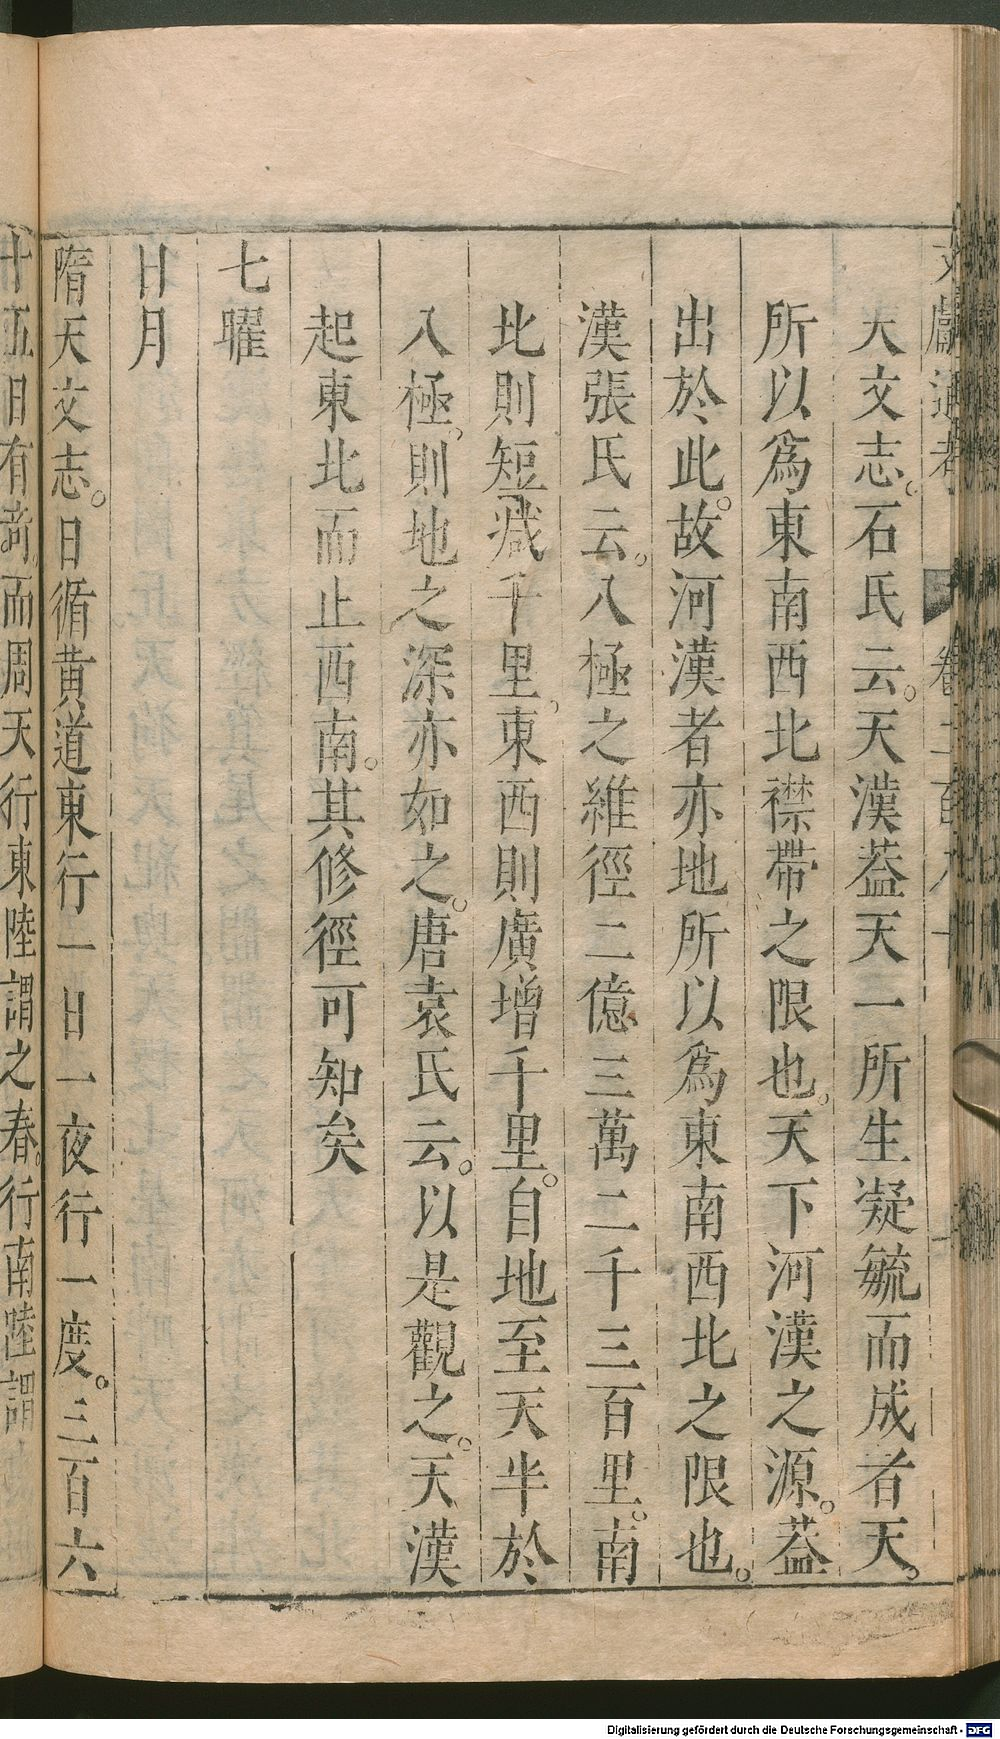 文獻通考 卷二百八十
天文志。石氏云。天漢蓋天一所生凝毓而成者天。
所以爲東南西北襟帶之限也。天下河漢之源。蓋
出於此。故河漢者亦地所以爲東南西北之限也。
漢張氏云。八極之維徑二億三萬二千三百里。南
北則短減千里。東西則廣增千里。自地至天半於
八極。則地之深亦如之。唐袁氏云。以是觀之。天漢
起東北而止西南。其修徑可知矣
七曜
日月
隋天文志。日循黃道東行一日一夜行一度。三百六
十五日有奇。而周天行東陸謂之春。行南陸謂
Digitalisierung gefördert durch die Deutsche Forschungsgemeinschaft - DFG